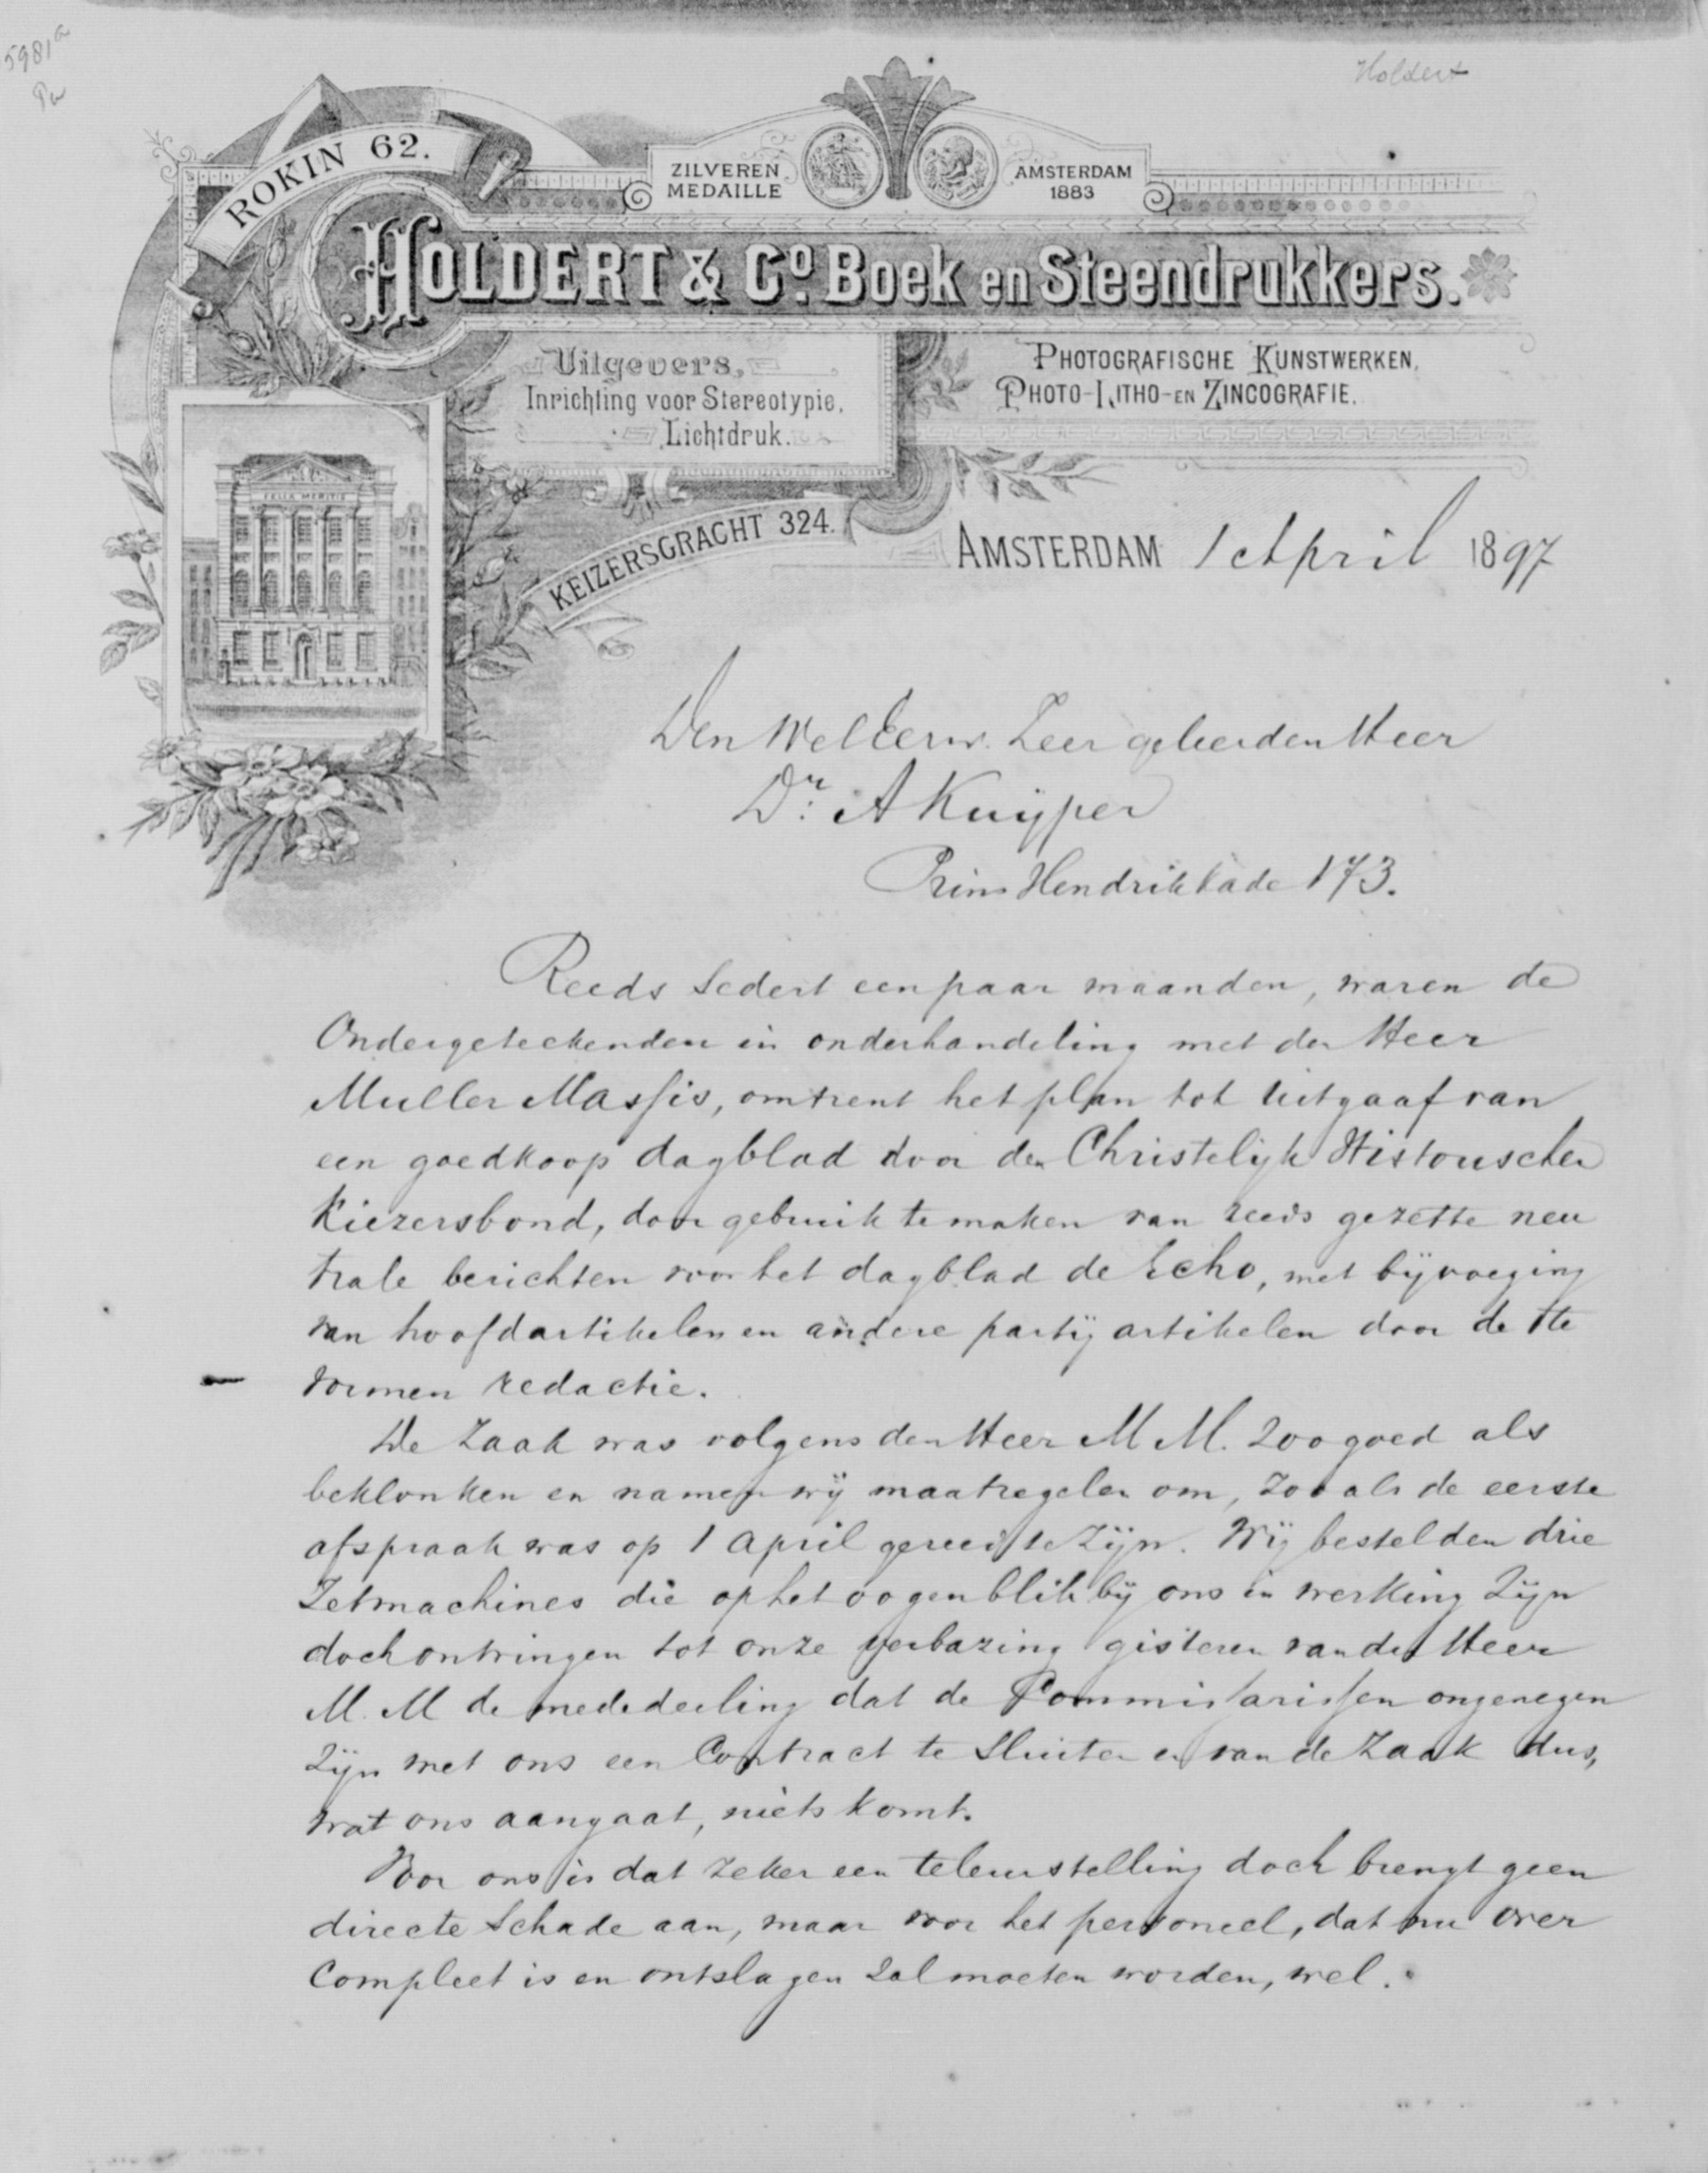 5981a
Holdert
ROKIN 62.
ZILVEREN MEDAILLE
AMSTERDAM 1883
HOLDERT & Co. Boek en Steendrukkers.
Uitgevers,
Inrichting voor Stereotypie,
Lichtdruk.
PHOTOGRAFISCHE KUNSTWERKEN,
PHOTO-LITHO-EN ZINCOGRAFIE.
FELIX MERITIS
KEIZERSGRACHT 324.
AMSTERDAM 1 April 1897
Den WelEerw. Zeer geleerden Heer
Dr: A Kuijper
Prins Hendrikkade 173.
Reeds sedert een paar maanden, waren de
Ondergeteekenden in onderhandeling met den Heer
Muller Massis, omtrent het plan tot uitgaaf van
een goedkoop dagblad door den Christelijk Historischen
Kiezersbond, door gebruik te maken van reeds gezette neu
trale berichten voor het dagblad de Echo, met bijvoeging
van hoofdartikelen en andere partij artikelen door de te
vormen redactie.
De Zaak was volgens den Heer M M. zoo goed als
beklonken en namen wij maatregelen om, zooals de eerste
afspraak was op 1 April gereed te zijn. Wij bestelden drie
Zetmachines die op het oogenblik bij ons in werking zijn
doch ontvingen tot onze verbazing gisteren van den Heer
M. M de mededeeling dat de Commissarissen ongenegen
zijn met ons een Contract te sluiten en van de Zaak dus,
wat ons aangaat, niets komt.
Voor ons is dat zeker een teleurstelling doch brengt geen
directe schade aan, maar voor het personeel, dat nu over
Compleet is en ontslagen zal moeten worden, wel.